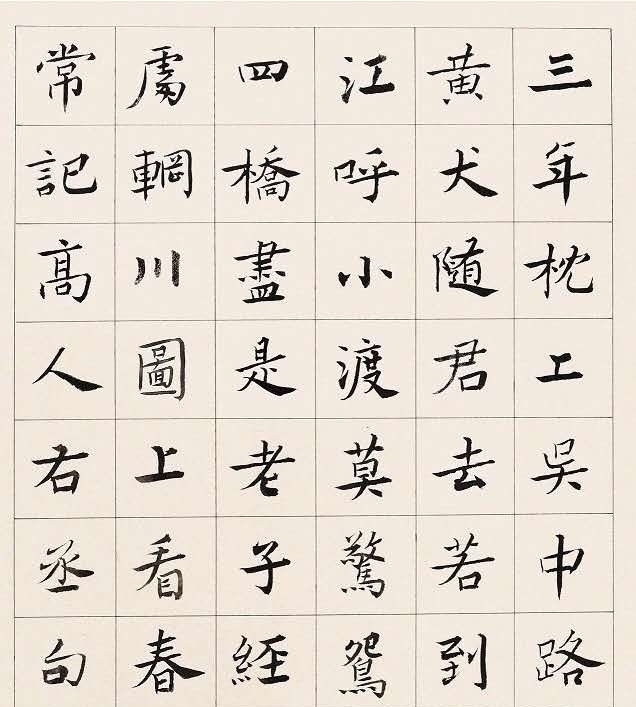 三年枕上吳中路
黄犬隨君去若到
江呼小渡莫驚鴛
四橋盡是老子經
處輞川圖上看春
常記高人右丞句